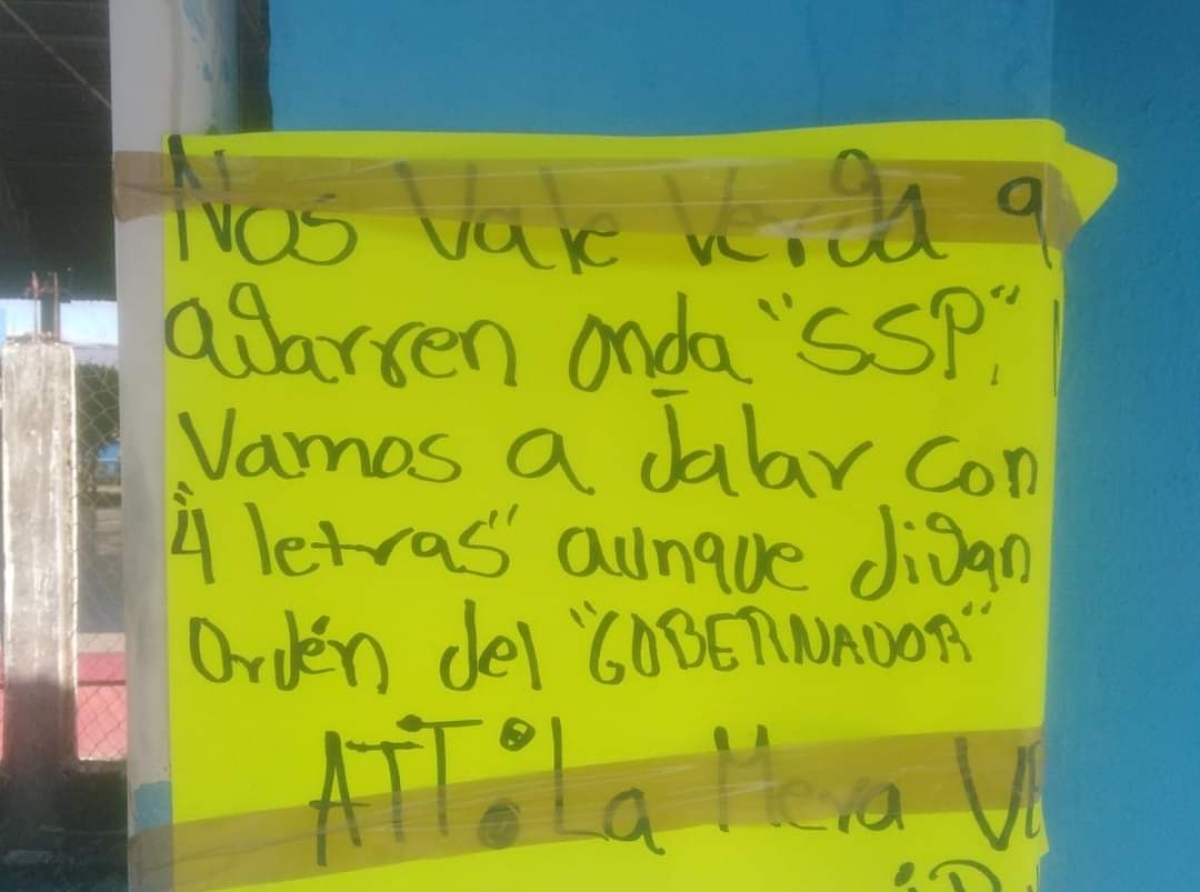 Nos Vale Verda q
agarren onda "SSP".
Vamos a Jalar con
"4 letras" aunque digan
Ordén del "GOBERNADOR"
ATT: La Mera